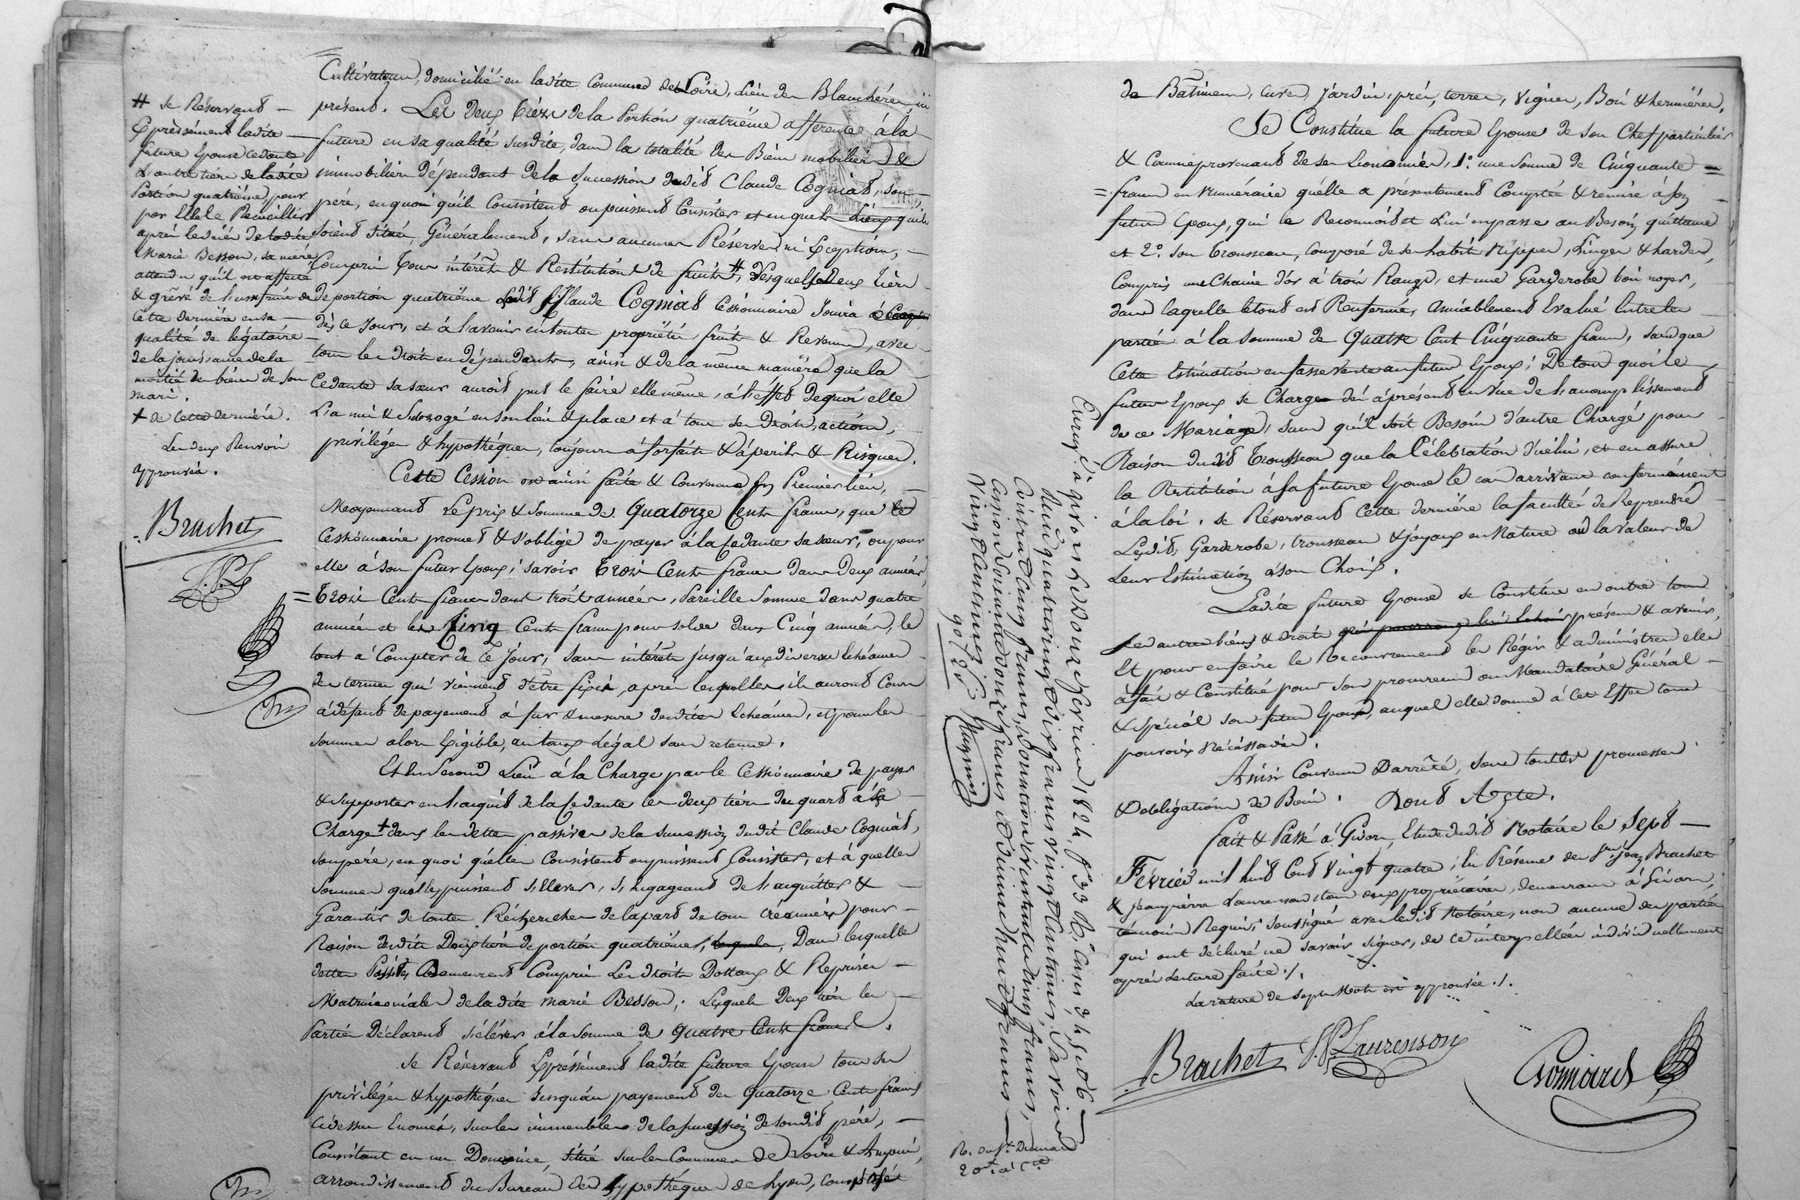 Cultivateur, domicilié en ladite Commune de Loire, Lieu des Blanchères, ici
présent. Les deux tiers de la Portion quatrième afferente à la
future en sa qualité susdite, dans la totalité des Biens mobiliers &
immobiliers dépendants de la Succession dudit Claude Cogniat, son
père, en quoi qu'ils Consistent ou puissent Consister et en quels Lieux qu'ils
soient Situés, Généralement, sans aucunes Réserves ni Exceptions,
Compris tous intérêts & Restitutions de fruits #, desquels deux tiers
de portion quatrième ledit Claude Cogniat Cessionnaire Jouira
dès ce Jour, et à l'avenir en toute propriété, fruits & Revenus, avec
tous les droits en dépendants, ainsi & de la même manière que la
Cédante sa sœur auroit put le faire elle même, à l'effet de quoi elle
L'a mis & Subrogé en son lieu & place et à tous ses Droits, actions,
privilèges & hypothèques, toujours à forfaits & à périls & Risques.
Cette Cession est ainsi faite & Convenue, En Premier lieu,
Moyennant Le prix & Somme de Quatorze Cents francs, que le
Cessionnaire promet & s'oblige de payer à la Cédante sa sœur, ou pour
elle à son futur Epoux, savoir Trois Cents francs dans Deux années,
= Trois Cents francs dans trois années, Pareille Somme dans quatre
années et les Cinq Cents francs pour solde dans Cinq années, le
tout à Compter de Ce Jour, sans intérêts jusqu'aux diverses Echéances
des termes qui viennent d'être fixés, après lesquelles ils auront Cours
à défaut de payement à fur & mesure desdites Echéances, et pour les
sommes alors Exigibles, au taux Légal sans retenue.
Et En Second Lieu à la Charge par le Cessionnaire de payer
& supporter en l'acquit de la Cédante les deux tiers du quart à sa
Charge + dans les dettes passives de la succession dudit Claude Cogniat,
son père, en quoi qu'elles Consistent ou puissent Consister, et à quelles
Sommes qu'elles puissent s'Elever, s'Engageant de l'acquitter &
Garantir de toutes Recherches de la part de tous créanciers pour
Raison desdits Deux tiers de portion quatrième, Dans lesquelles
dettes Passives demeurent Compris Les droits Dotaux & Reprises
Matrimoniales de ladite marie Besson, Lesquels Deux tiers les
Parties Déclarent s'élever à la Somme de Quatre Cents francs.
Se Réservant Expressément ladite future Epouse tous ses
privilèges & hypothèques Jusqu'au payement des Quatorze Cents francs
Cidessus Enoncés, sur les immeubles de la succession de sondit père,
Consistant en un Domaine, Situé sur les Communes de Loire & Ampuis,
arrondissement du Bureau des hypothèques de Lyon, composé
# se Réservant
Expressément ladite
future Epouse cédante
L'autre tiers de ladite
Portion quatrième, pour
par Elle le Recueillir
après le décès de ladite
Marie Besson, sa mère
attendu qu'il est affecté
& grêvé de l'usufruit de
Cette dernière en sa
qualité de légataire
de la jouissance de la
moitié des biens de son
mari.
+ de Cette dernière.
Les deux Renvois
approuvés.
Brachet
J.P.L
de Bâtimens, cures, jardin, prés, terres, Vignes, Bois & hermières.
Se Constitue la future Epouse de son Chef particulier
& Comme provenant de ses Economies, 1°. une Somme de Cinquante =
= francs en numéraire qu'elle a présentement Comptée & remise à son
futur Epoux, qui le Reconnoit et Lui en passe au Besoin quittance
et 2°. son trousseau, Composé de ses habits Nippes, Linges & hardes,
Compris une Chaine d'or à trois Rangs, et une Garderobe bois noyer,
dans laquelle le tout est Renfermé, amiablement Evalué Entre les
parties à la Somme de Quatre Cent Cinquante francs, sans que
Cette Estimation en fasse vente au futur Epoux; De tout quoi le
futur Epoux se Charge dès à présent en Vue de l'accomplissement
de ce Mariage, sans qu'il soit Besoin d'autre Charge pour
Raison dudit trousseau que la Célébration d'icelui, et en assure
la Restitution à sa future Epouse le cas arrivant conformément
à la loi. Se Réservant Cette dernière la faculté de Reprendre
Lesdits, Garderobe, trousseau & joyaux en Nature ou la valeur de
leur Estimation à son Choix.
Ladite future Epouse se Constitue en outre tous
ses autres biens & droits présens & avenir,
Et pour en faire le Recouvrement les Régir & administrer elle
a fait & Constitué pour son procureur ou Mandataire Général
& spécial son futur Epoux, auquel elle donne à Cet Effet tous
pouvoirs Nécessaires.
Ainsi Convenu & arrêté, sous toutes promesses
& obligations de Biens. Dont Acte.
Fait & Passé à Givors, Etude dudit Notaire le Sept
Février mil huit Cent Vingt quatre, En Présence des Srs. Jean Brachet
& Jean pierre Laurenson tous deux propriétaires, demeurans à Givors,
témoins Requis, soussignés avec ledit Notaire, non aucune des parties
qui ont déclaré ne savoir signer, de ce interpellées individuellement
après Lecture faite ./.
La rature de Sept Mots est approuvée ./.
Brachet J.P. Laurenson
Enreg. à givors le douze fevrier 1824. f° 33 R°. Cases
Reçu quatre vingt dix francs vingt centimes, Savoir
90f 20c
20